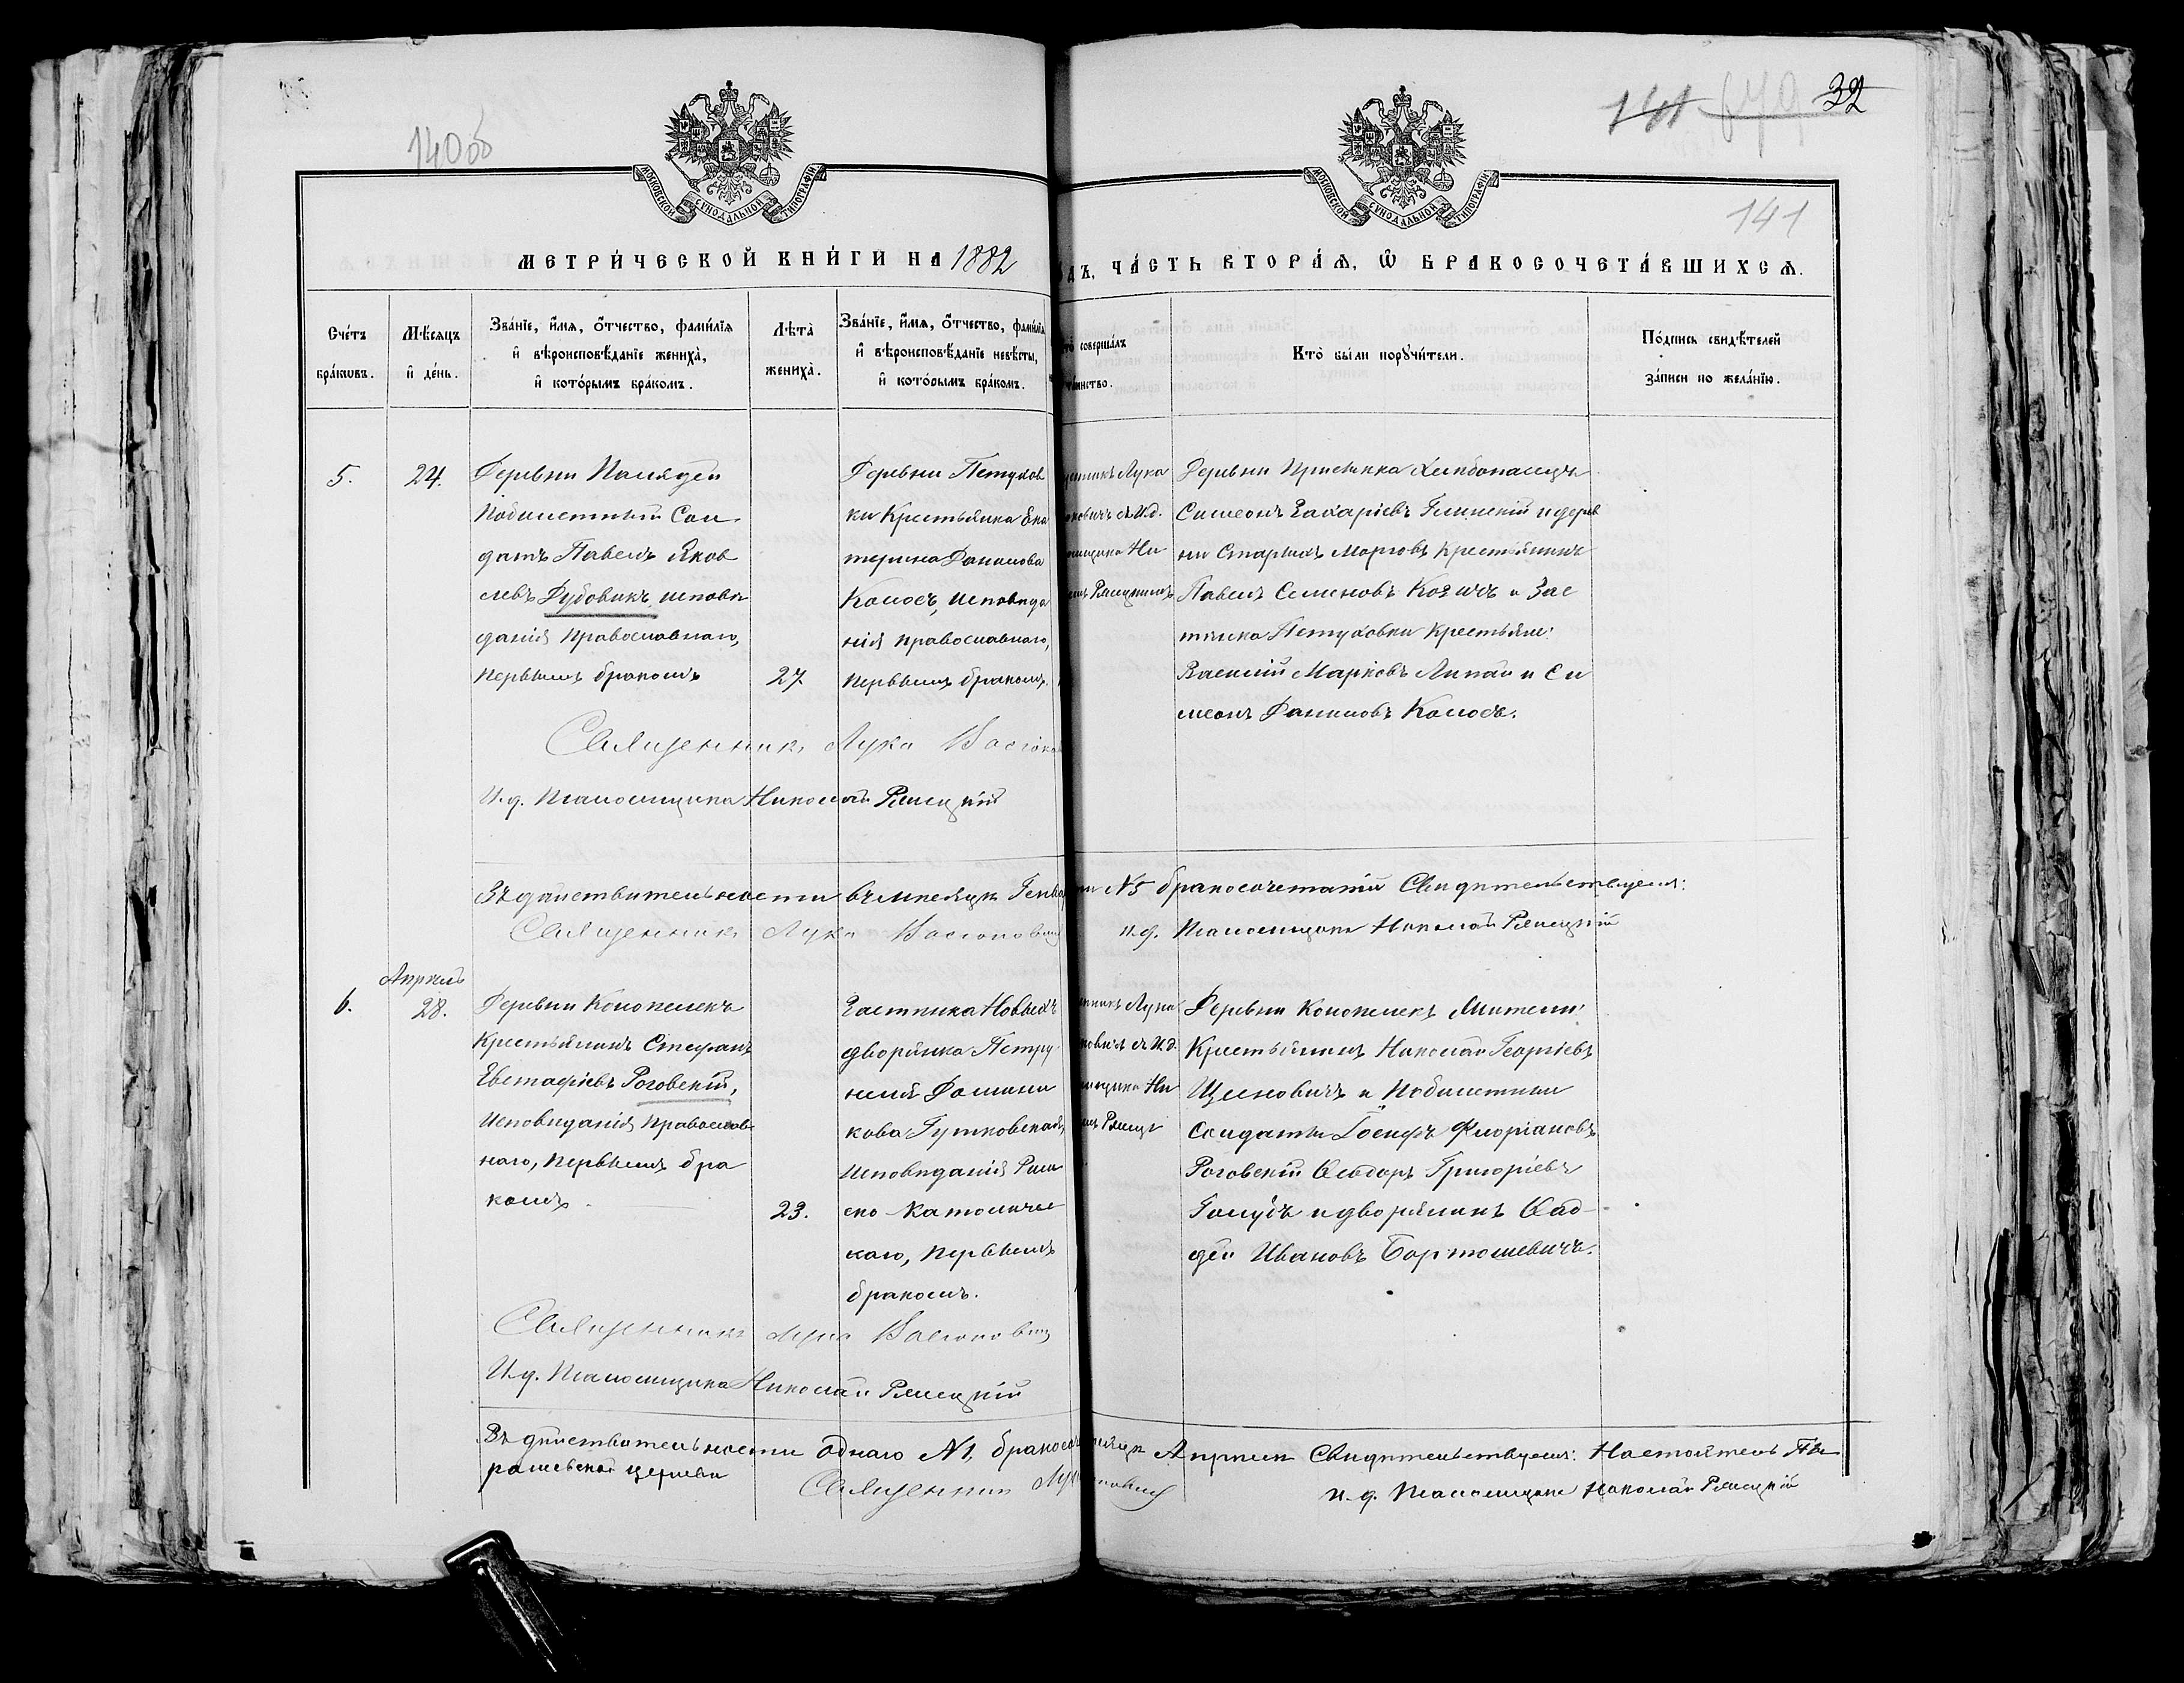 140об
141
32
141
МОСКОВСКОЙ СѴНОДАЛЬНОЙ ТИПОГРАФІИ
МОСКОВСКОЙ СѴНОДАЛЬНОЙ ТИПОГРАФІИ
МЕТРИ́ЧЕСКОЙ КНИ́ГИ НА 1882
ДЪ, ЧА́СТЬ ВТОРА́Ѧ, Ѿ БРАКОСОЧЕТА́ВШИХСѦ.
Сче́тъ
бра́кѡвъ.
Мѣ́сяцъ
и҆ де́нь.
Зва́нїе, и҆́мѧ, ѻ҆́тчество, фами́лїѧ
и҆ вѣроисповѣ́данїе жениха̀,
и҆ кото́рымъ бра́комъ.
Лѣ́та̀
жениха̀.
Зва́нїе, и҆́мѧ, ѻ҆́тчество, фами́лїѧ
и҆ вѣроисповѣ́данїе невѣ́сты,
и҆ кото́рымъ бра́комъ.
то̀ соверша́лъ
таинство.
Кто̀ бы́ли порꙋчи́тели.
По́дпись свидѣ́телей
за́писи по жела́нїю.
5.
24.
Деревни
Побилетный Сол-
датъ Павелъ Яков
левъ Дубовикъ, исповѣ
данія православнаго,
первымъ бракомъ
27
Деревни Петухов
ки Крестьянка Ека
терина Данилова
Колосъ, исповѣда
нія православнаго,
первымъ бракомъ.
Лука
овичъ и И.д.
омщика Ни
Деревни
Симеонъ Захаріевъ Глинскій и дерев
ни Старыхъ Морговъ Крестьянинъ
Павелъ Семеновъ Козичъ и Зас
тѣнка Петуховки Крестьяне:
Василій Марковъ Липай и Си
меонъ Даниловъ Колосъ.
Священникъ Лука
И.д. Псаломщика Николай Рѣмецкій
Въ дѣйствительности въ мѣсяцѣ Генвар
ѣ №5 бракосочетаній Свидѣтельствуемъ:
Священникъ Лука
и.д. Псаломщика Николай Рѣмецкій
Апрѣль
6.
28.
Деревни Конопелекъ
Крестьянинъ Стефанъ
Евстафіевъ Роговскій,
исповѣданія Православ
наго, первымъ бра
комъ.
23.
Застѣнка Новыхъ
дворянка Петру
нелія Домини
кова Гутковская,
исповѣданія Рим
ско-Католичес
каго, первымъ
бракомъ.
никъ Лука
и И.д.
омщика Ни
Деревни Конопелекъ Жители:
Крестьянинъ Николай Георгіевъ
и Побилетныи
Солдаты Іосифъ Флоріановъ
Роговскій Ѳеодоръ Григоріевъ
Голубъ и дворянинъ Ѳад-
дей Ивановъ Бортошевичъ.
Священникъ Лука
И.д. Псаломщика Николай Рѣмецкій
Въ дѣйствительности однаго №1, бракосоч
мѣсяцѣ Апрѣлѣ Свидѣтельствуемъ: Настоятель
церкви
Священникъ
и.д. Псаломщика Николай Рѣмецкій